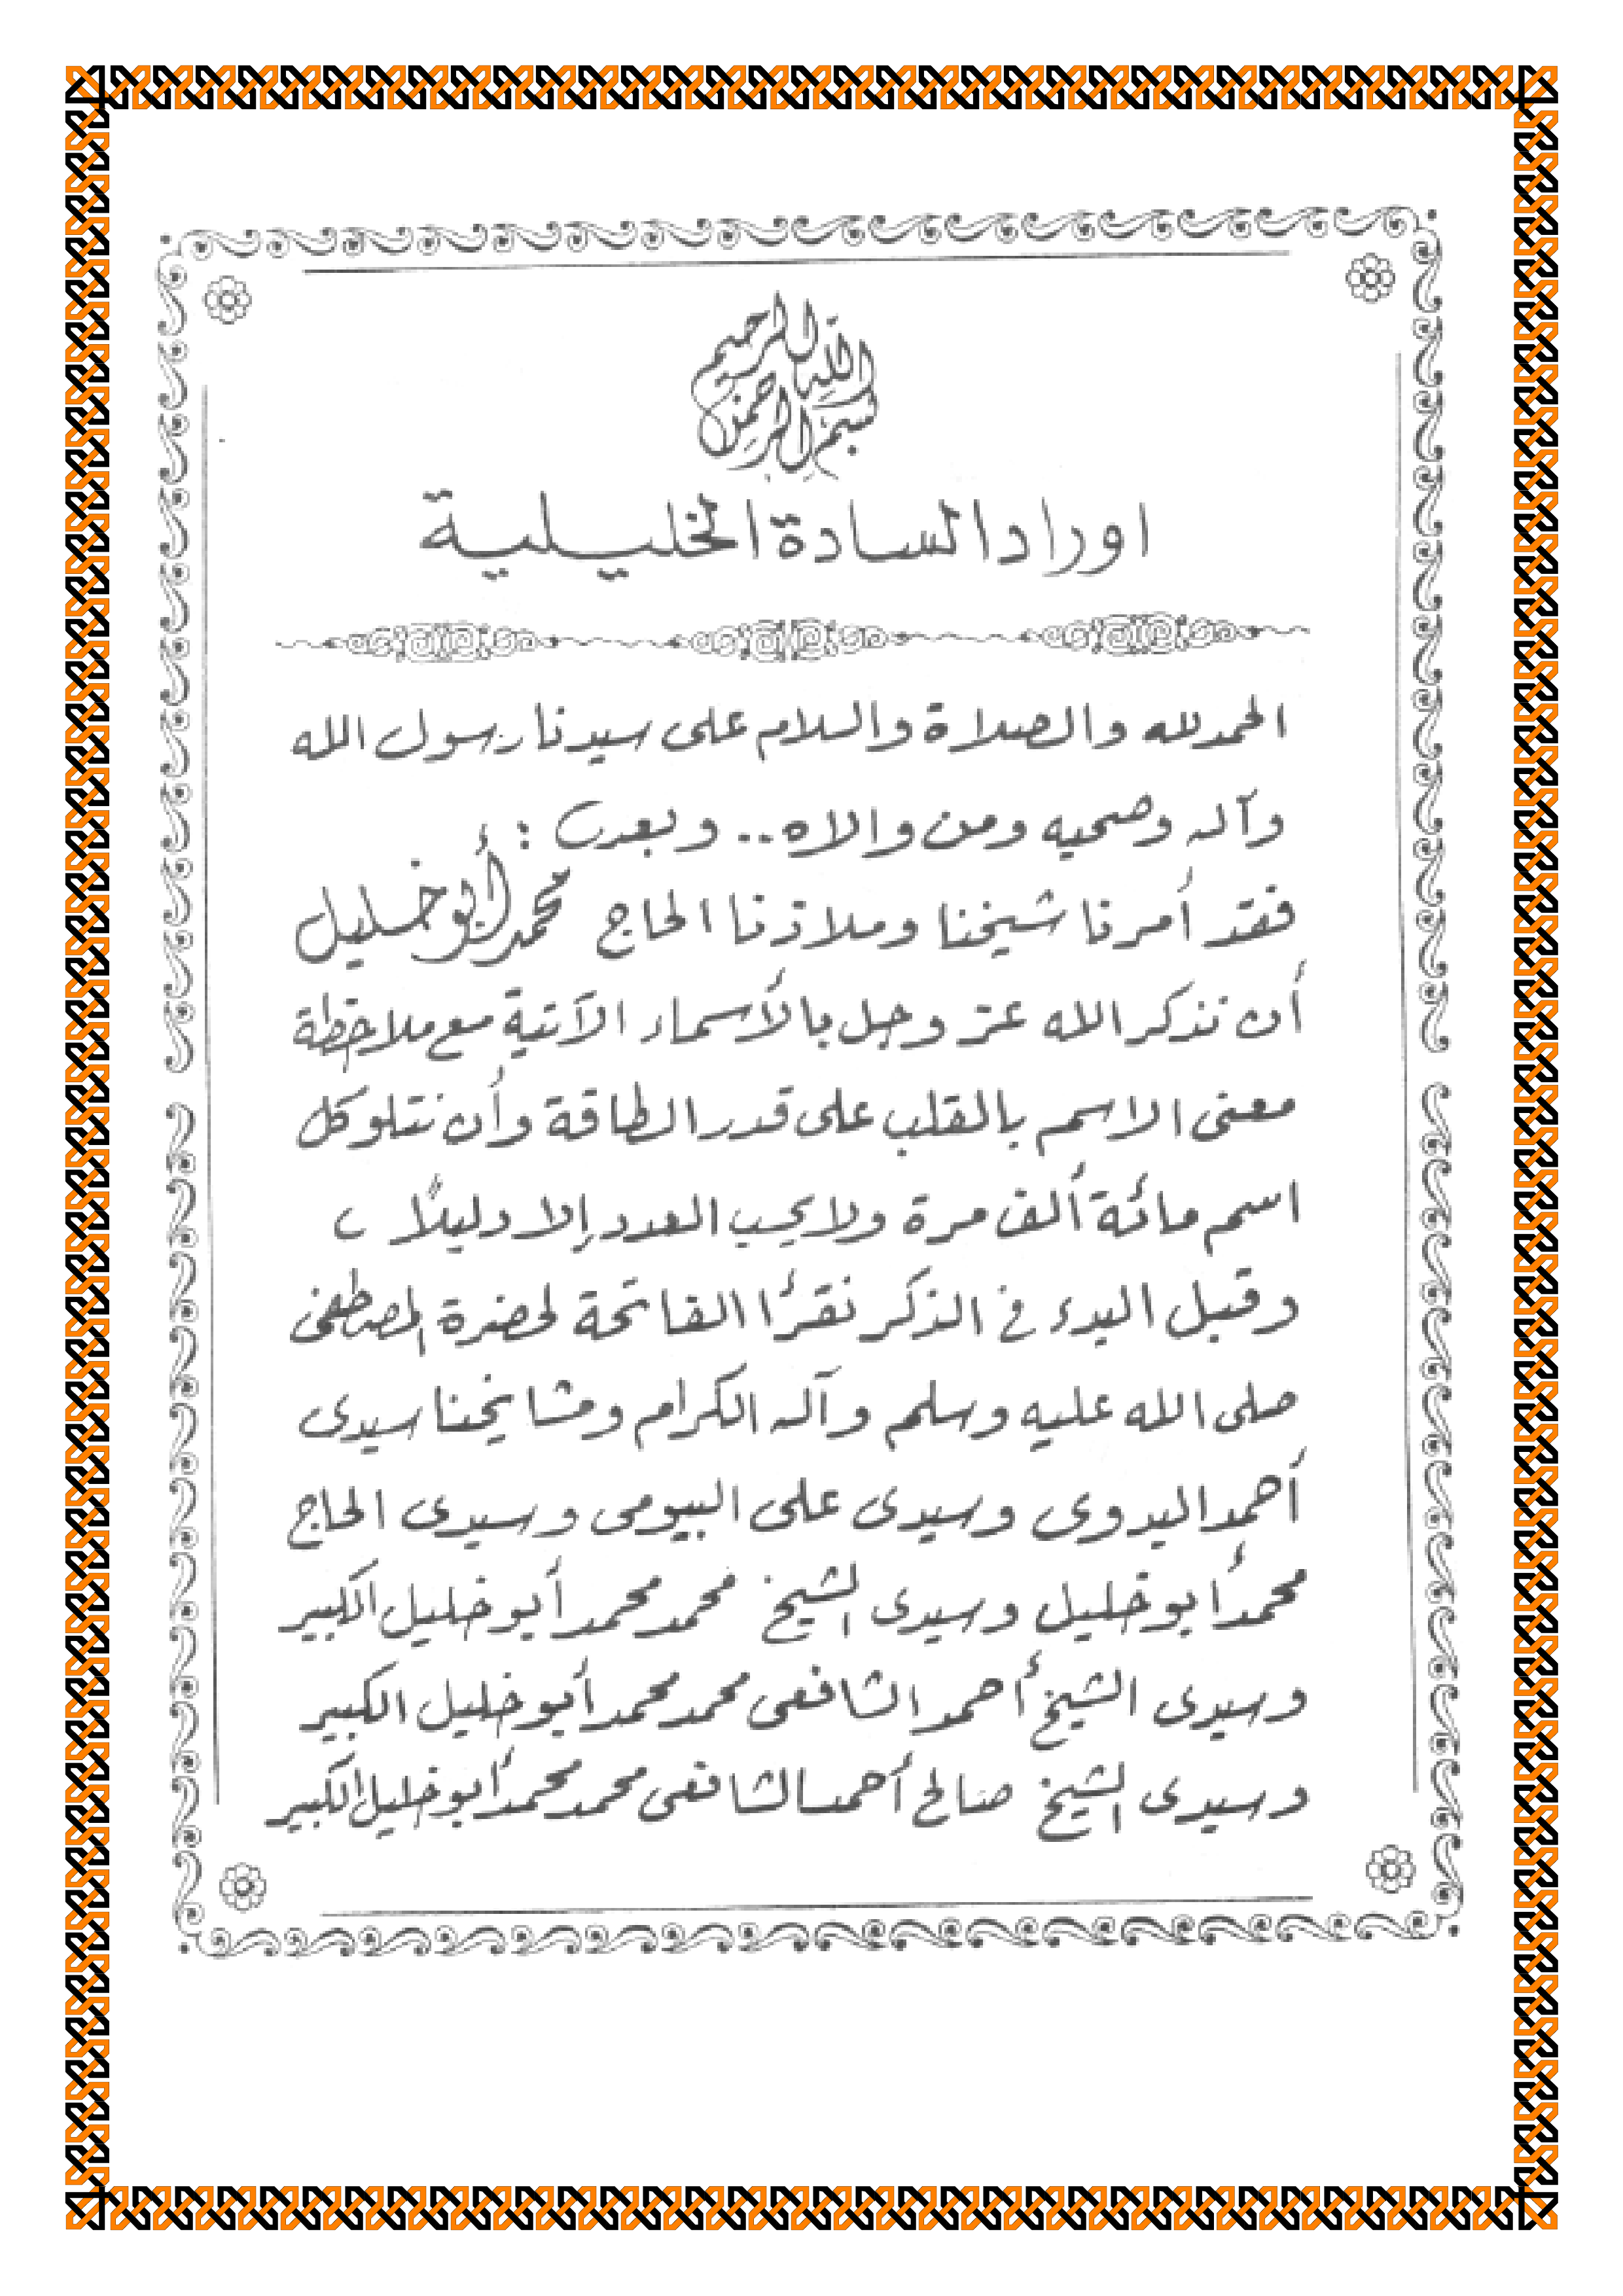 بسم الله الرحمن الرحيم
اوراد السادة الخليلية
الحمد لله والصلاة والسلام على سيدنا رسول الله
وآله وصحبه ومن والاه .. وبعد :
فقد أمرنا شيخنا وملاذنا الحاج محمد أبو خليل
أن نذكر الله عز وجل بالأسماء الآتية مع ملاحظة
معنى الاسم بالقلب على قدر الطاقة وأن نتلو كل
اسم مائة ألف مرة ولا يحسب العدد إلا وليلاً
وقبل البدء فى الذكر نقرأ الفاتحة لحضرة المصطفى
صلى الله عليه وسلم وآله الكرام ومشايخنا سيدى
أحمد البدوى وسيدى على البيومى وسيدى الحاج
محمد أبو خليل وسيدى الشيخ محمد محمد أبو خليل الكبير
وسيدى الشيخ أحمد الشافعى محمد محمد أبو خليل الكبير
وسيدى الشيخ صالح أحمد الشافعى محمد محمد أبو خليل الكبير